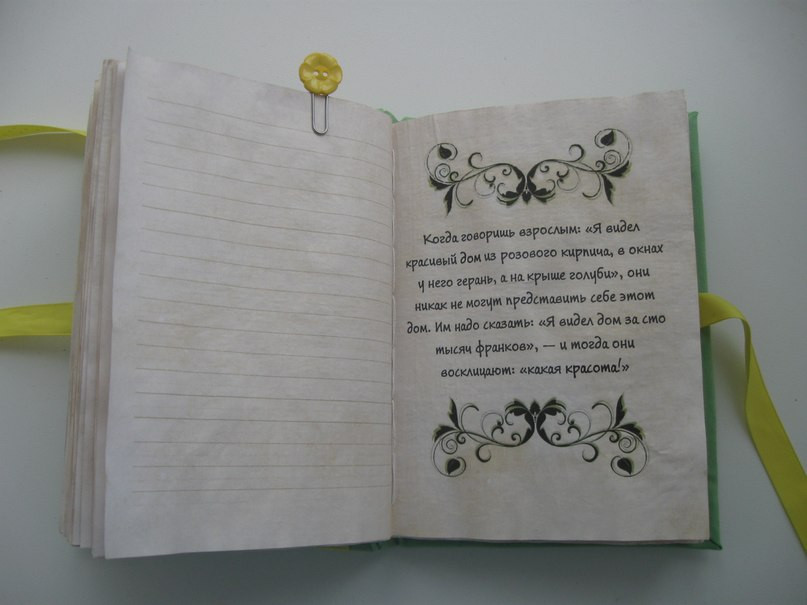 Когда говоришь взрослым: «Я видел
красивый дом из розового кирпича, в окнах
у него герань, а на крыше голуби», они
никак не могут представить себе этот
дом. Им надо сказать: «Я видел дом за сто
тысяч франков», — и тогда они
восклицают: «какая красота!»